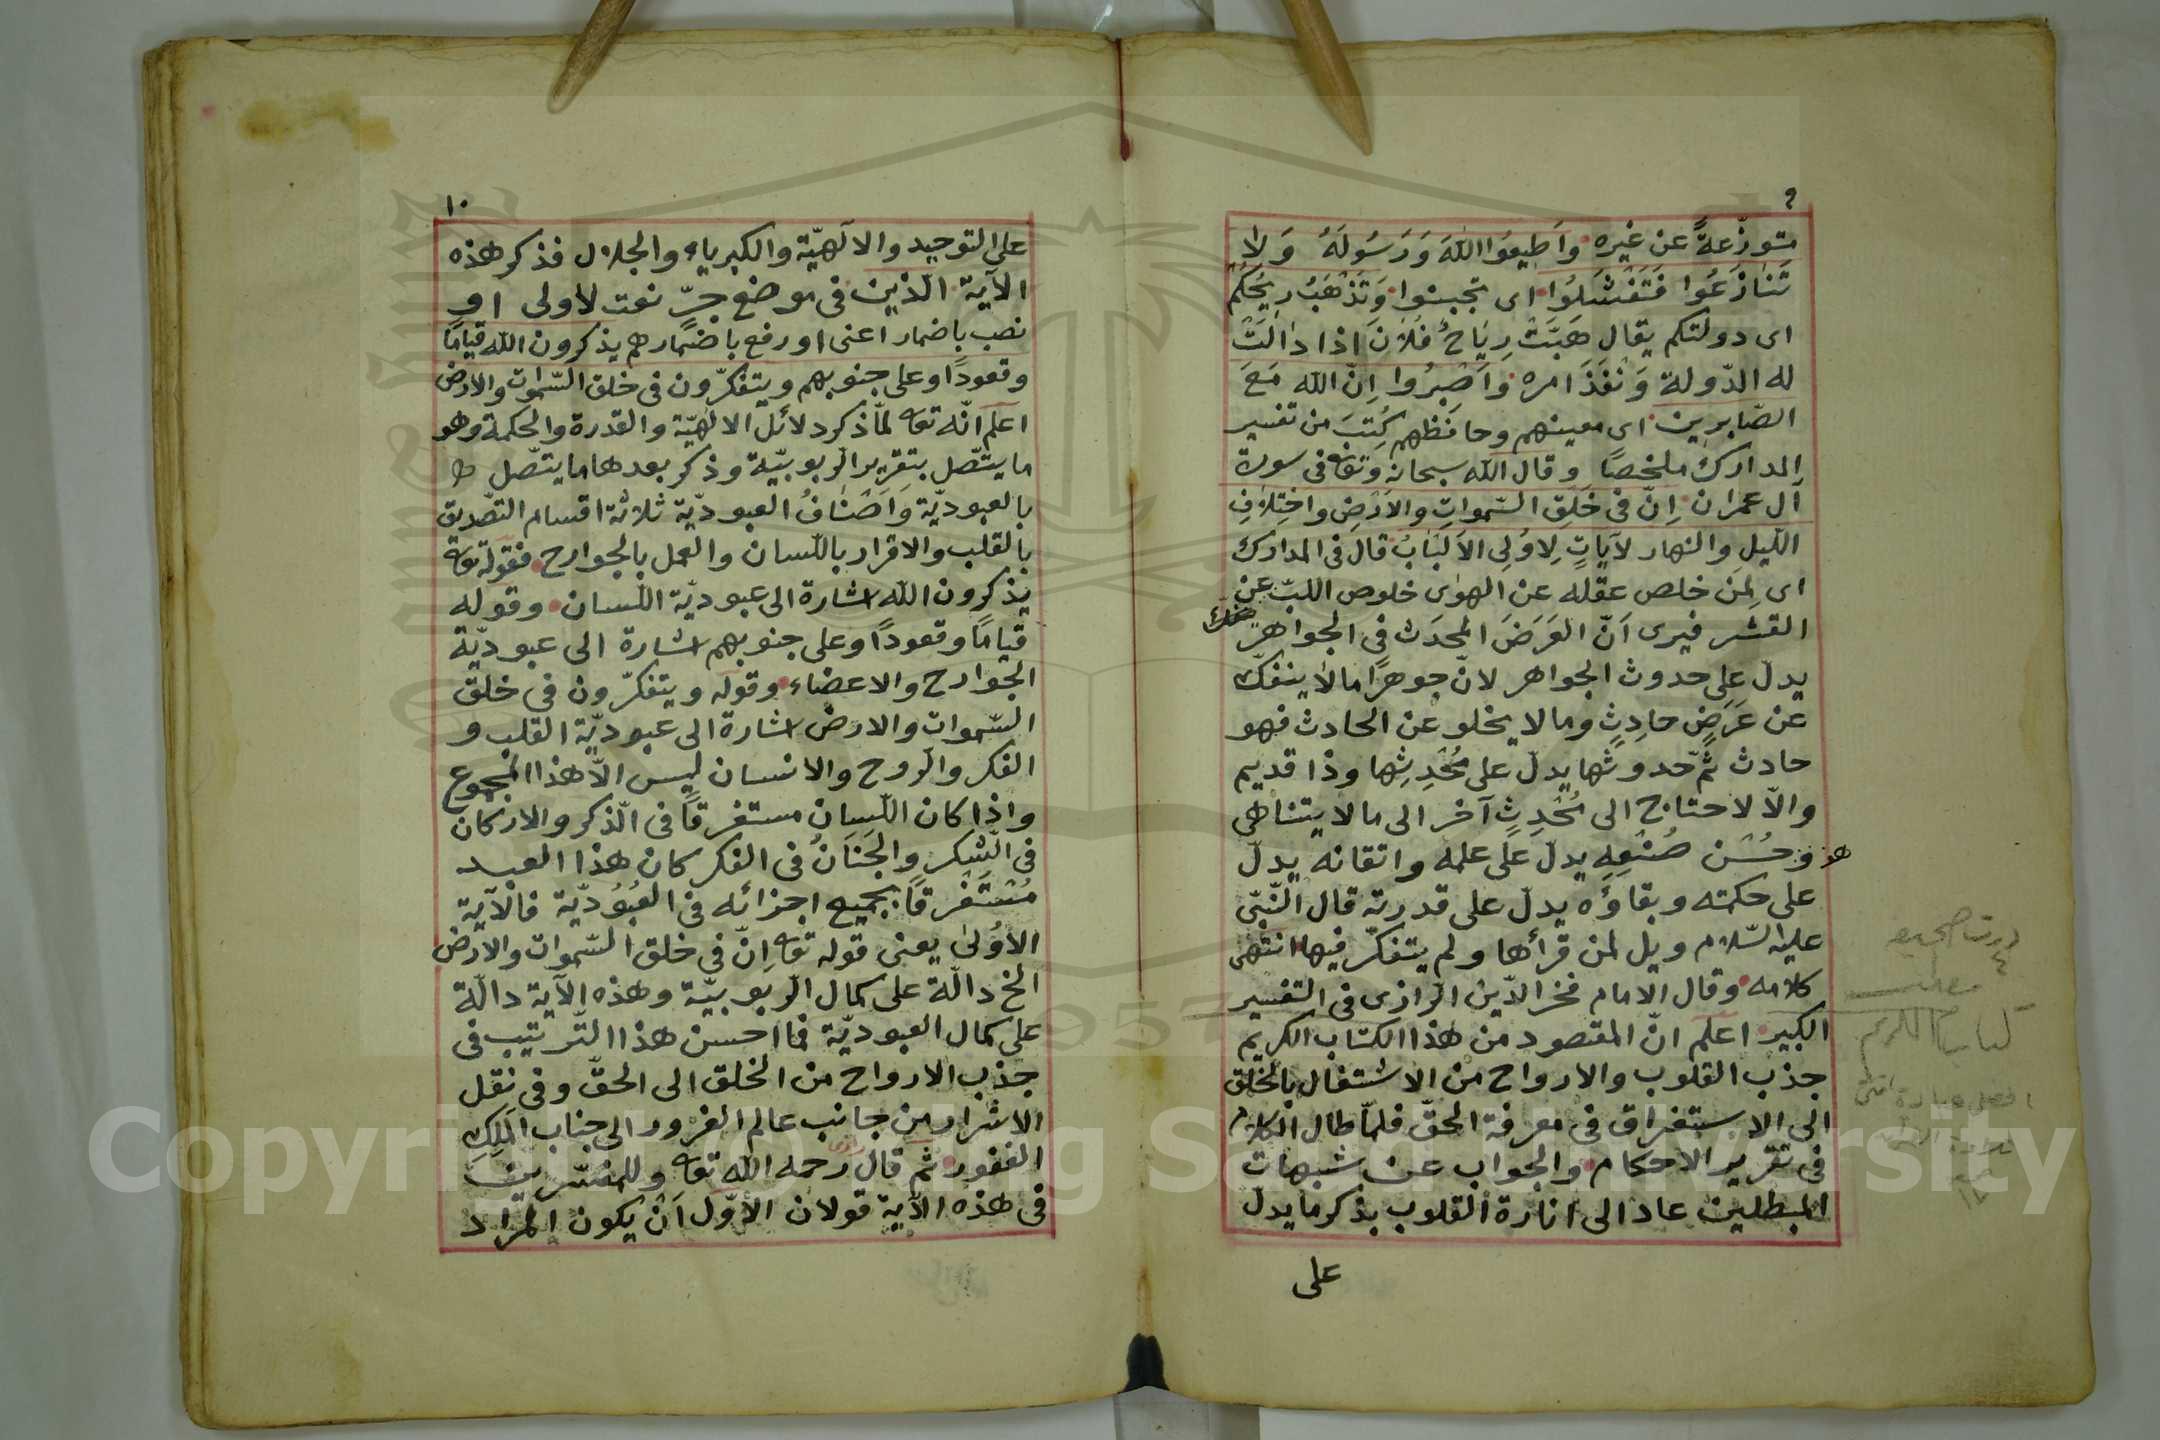 ٩
متوزّعةً عن غيره واَطيعُوا اللّٰهَ وَرَسُولَهُ وَلا
تَنازَعُوا فَتَفْشَلُوا اى تجبنوا وَتَذْهَبُ رِيحُكُم
اى دولتكم يقال هَبَّتْ رِيَاحُ فُلانَ اذا دالَتْ
له الدّولة وَنَفَذَ امره وَاَصْبِرُوا اِنّ اللّه مَعَ
الصّابرين اى معينهم وحافظهم كُتِبَ من تفسير
المدارك ملخصًا وقال اللّه سبحانه وتعالى فى سورة
آل عمران اِنّ فى خَلْقِ السّمواتِ والاَرْضِ واختِلافِ
اللّيلِ والنهار لآياتٍ لِاوُلِى الاَلبَابُ قال فى المدارك
اى لِمن خلص عقله عن الهوٰى خلوص اللبّ عن
القشر فيرى اَنّ العَرَضَ المحدَث فى الجواهر
يدلّ على حدوث الجواهر لانّ جوهرًا ما لا ينفكّ
عن عَرَضٍ حادِثٍ وما لا يخلو عن الحادث فهو
حادث ثمّ حدوثها يدلّ على مُحْدِثِها وذا قديم
والّا لاحتاج الى مُحْدِثٍ آخر الى ما لا يتناهى
وحُسْن صُنْعِهِ يدلّ على علمه واتقانه يدلّ
على حكمته وبقاؤه يدلّ على قدرته قال النّبىّ
عليه السّلام ويل لمن قرأها ولم يتفكّر فيها انتهى
كلامه وقال الامام فخر الدّين الرّازى فى التفسير
الكبير اعلم انّ المقصود من هذا الكتاب الكريم
جذب القلوب والارواح من الاشتغال بالخلق
الى الاستغراق فى معرفة الحقّ فلمّا طال الكلام
فى تقرير الاحكام والجواب عن شبهات
المبطلين عاد الى انارة القلوب بذكر ما يدلّ
على
١٠
على التوحيد والالهيّة والكبرياء والجلال فذكر هذه
الآية الّذين فى موضع جرّ نعت لاولى او
نصب باضمار اعنى او رفع باضمار هم يذكرون اللّه قيامًا
وقعودًا وعلى جنوبهم ويتفكّرون فى خلق السّموات والارض
اعلم انّه تعا لمّا ذكر دلائل الالٰهيّة والقدرة والحكمة وهو
ما يتّصل بتقرير الربوبيّة وذكر بعدها ما يتّصل
بالعبوديّة وَاَصْنافُ العبوديّة ثلاثة اقسام التّصديق
بالقلب والاقرار باللّسان والعمل بالجوارح فقوله تعا
يذكرون اللّه اشارة الى عبوديّة اللّسان وقوله
قيامًا وقعودًا وعلى جنوبهم اشارة الى عبوديّة
الجوارح والاعضاء وقوله ويتفكّرون فى خلق
السّموات والارض اشارة الى عبوديّة القلب و
الفكر والرّوح والانسان ليس الّا هذا المجموع
واذا كان اللّسان مستغرقًا فى الذّكر والاركان
فى الشّكر والجَنَانُ فى الفكر كان هذا العبد
مُسْتَغْرقًا بجميع اجزائه فى العُبُوُديّة فالآية
الاُولىٰ يعنى قوله تعا اِنّ فى خلق السّموات والارض
الخ دالّة على كمال الرّبوبيّة وهذه الآية دالّة
على كمال العبوديّة فما احسن هذا التّرتيب فى
جذب الارواح من الخلق الى الحقّ وفى نقل
الاشرار من جانب عالم الغرور الى جناب المَلِكِ
الغفور ثم قال رحمه اللّه تعا وللمفسّرين
فى هذه الآية قولان الاوّل اَنْ يكون المراد
Copyright © King Saud University
1957